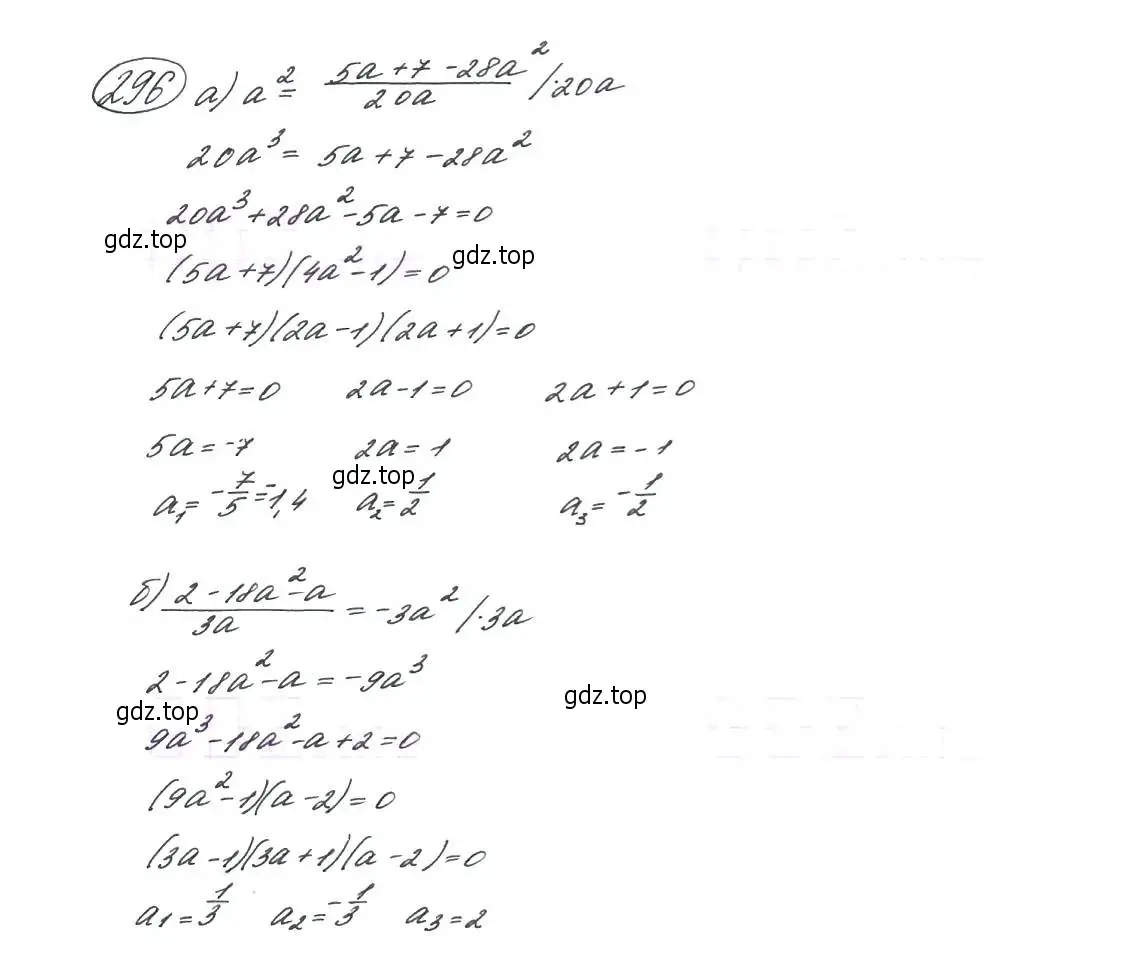 296 а) a² = (5a + 7 - 28a²)/(20a) /·20a
20a³ = 5a + 7 - 28a²
20a³ + 28a² - 5a - 7 = 0
gdz.top
(5a + 7)(4a² - 1) = 0 gdz.top
(5a + 7)(2a - 1)(2a + 1) = 0
5a + 7 = 0 2a - 1 = 0 2a + 1 = 0
5a = -7 2a = 1 2a = -1
gdz.top
a₁ = -7/5 = -1,4 a₂ = 1/2 a₃ = -1/2
б) (2 - 18a² - a)/(3a) = -3a² /·3a
2 - 18a² - a = -9a³
gdz.top gdz.top
9a³ - 18a² - a + 2 = 0
(9a² - 1)(a - 2) = 0
(3a - 1)(3a + 1)(a - 2) = 0
a₁ = 1/3 a₂ = -1/3 a₃ = 2